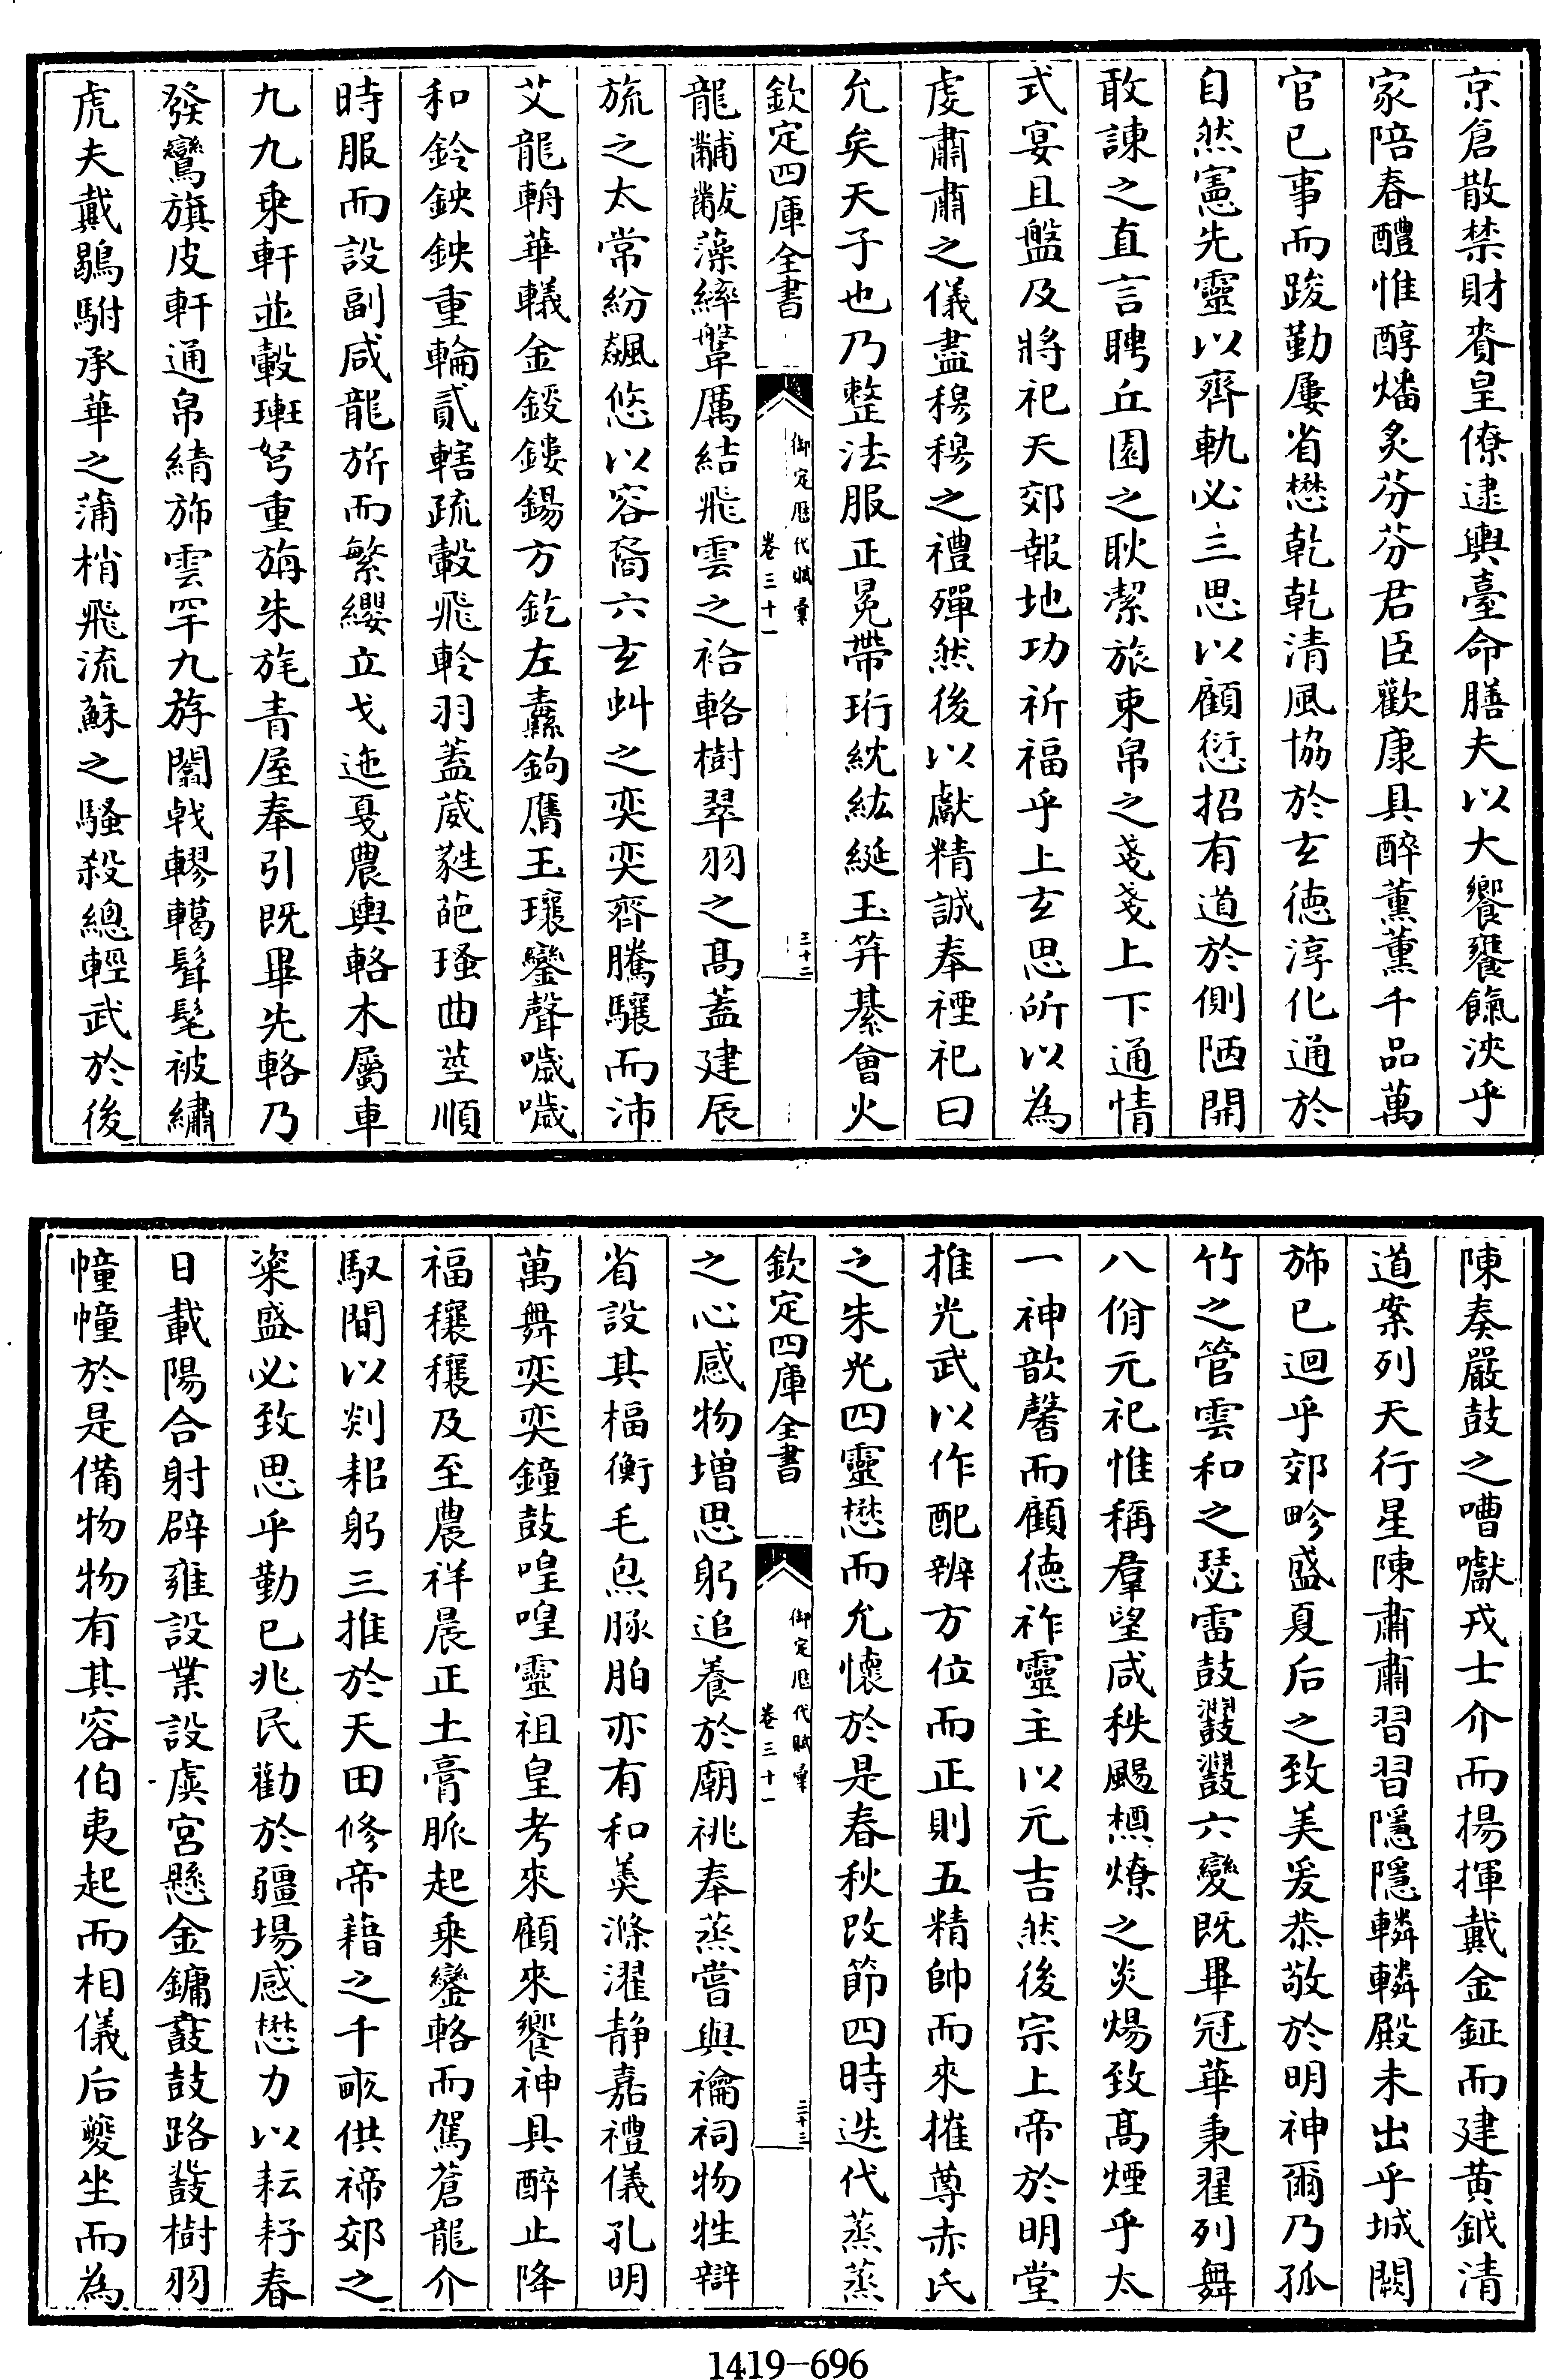 京倉散禁財賚皇僚逮輿臺命膳夫以大饗饔餼浹乎
家陪春醴惟醇燔炙芬芬君臣歡康具醉薰薰千品萬
官已事而踆勤屢省懋乾乾清風協於玄徳淳化通於
自然憲先靈以齊軌必三思以顧愆招有道於側陋開
敢諫之直言聘丘園之耿潔旅束帛之戔戔上下通情
式宴且盤及將祀天郊報地功祈福乎上玄思所以為
虔肅肅之儀盡穆穆之禮殫然後以獻精誠奉禋祀曰
允矣天子也乃整法服正冕帶珩紞紘綖玉筓綦會火
欽定四庫全書
御定歴代賦彙
卷三十一
三十二
龍黼黻藻繂鞶厲結飛雲之袷輅樹翠羽之髙蓋建辰
旒之太常紛飆悠以容裔六玄虯之奕奕齊騰驤而沛
艾龍輈華轙金鋄鏤鍚方釳左纛鉤膺玉瓖鑾聲噦噦
和鈴鉠鉠重輪貳轄疏轂飛軨羽蓋葳蕤葩瑵曲莖順
時服而設副咸龍旂而繁纓立戈迤戛農輿輅木屬車
九九乗軒並轂㻎弩重旃朱旄青屋奉引既畢先輅乃
發鸞旗皮軒通帛綪斾雲罕九斿闟戟轇輵髶髦被繡
虎夫戴鶡駙承華之蒲梢飛流蘇之騷殺總輕武於後
陳奏嚴鼓之嘈囐戎士介而揚揮戴金鉦而建黄鉞清
道案列天行星陳肅肅習習隱隱轔轔殿未出乎城闕
斾已迴乎郊畛盛夏后之致美爰恭敬於明神爾乃孤
竹之管雲和之瑟雷鼓鼝鼝六變既畢冠華秉翟列舞
八佾元祀惟稱羣望咸秩颺槱燎之炎煬致髙煙乎太
一神歆馨而顧徳祚靈主以元吉然後宗上帝於明堂
推光武以作配辨方位而正則五精帥而來摧尊赤氏
之朱光四靈懋而允懷於是春秋改節四時迭代蒸蒸
欽定四庫全書
御定歴代賦彙
卷三十一
三十三
之心感物増思躬追養於廟祧奉蒸嘗與禴祠物牲辯
省設其楅衡毛炰豚胉亦有和羮滌濯静嘉禮儀孔明
萬舞奕奕鐘鼓喤喤靈祖皇考來顧來饗神具醉止降
福穰穰及至農祥晨正土膏脈起乗鑾輅而駕蒼龍介
馭間以剡耜躬三推於天田修帝藉之千畝供禘郊之
粢盛必致思乎勤已兆民勸於疆場感懋力以耘耔春
日載陽合射辟雍設業設虡宫懸金鏞鼖鼓路鼗樹羽
幢幢於是備物物有其容伯夷起而相儀后夔坐而為
1419—696